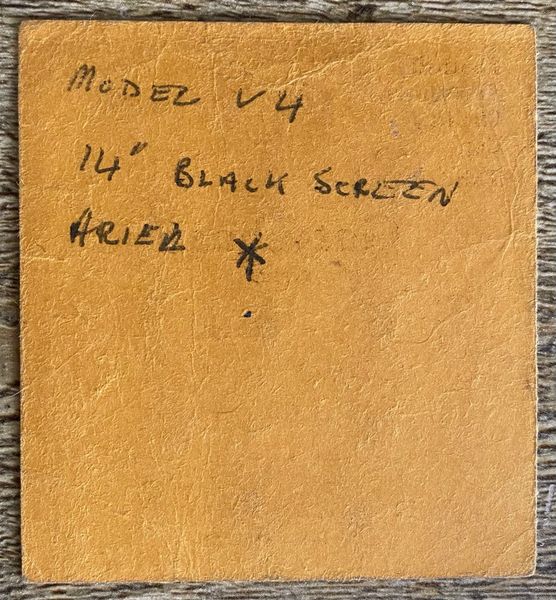 MODEL V4
14" BLACK SCREEN
ARIEL *